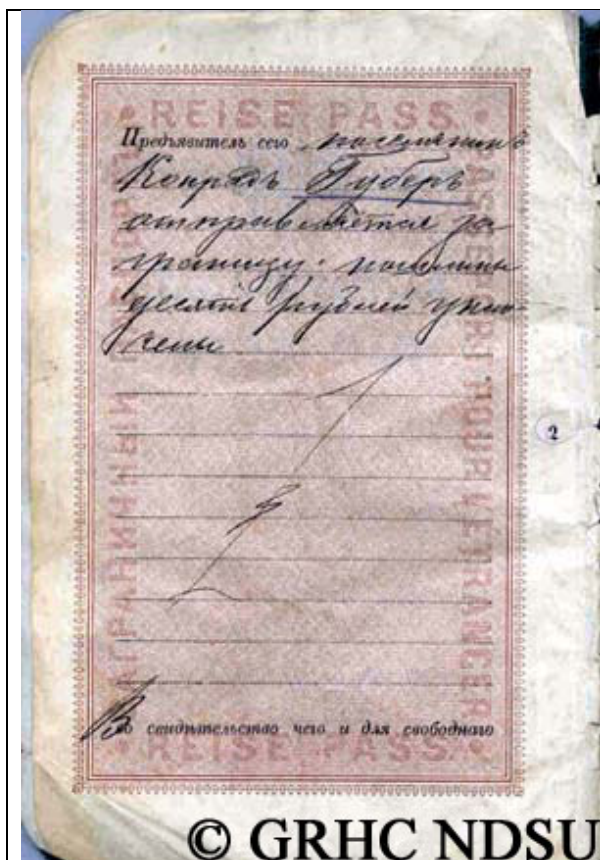 • REISE PASS •
Предъявитель сего поселянинъ
Конрадъ Губеръ
отправляется за
границу: пошлины
десять рублей упло-
чены
ЗАГРАНИЧНЫЙ
PASSEPORT POUR L'ETRANGER
2
Во свидѣтельство чего и для свободнаго
• REISE PASS •
© GRHC NDSU